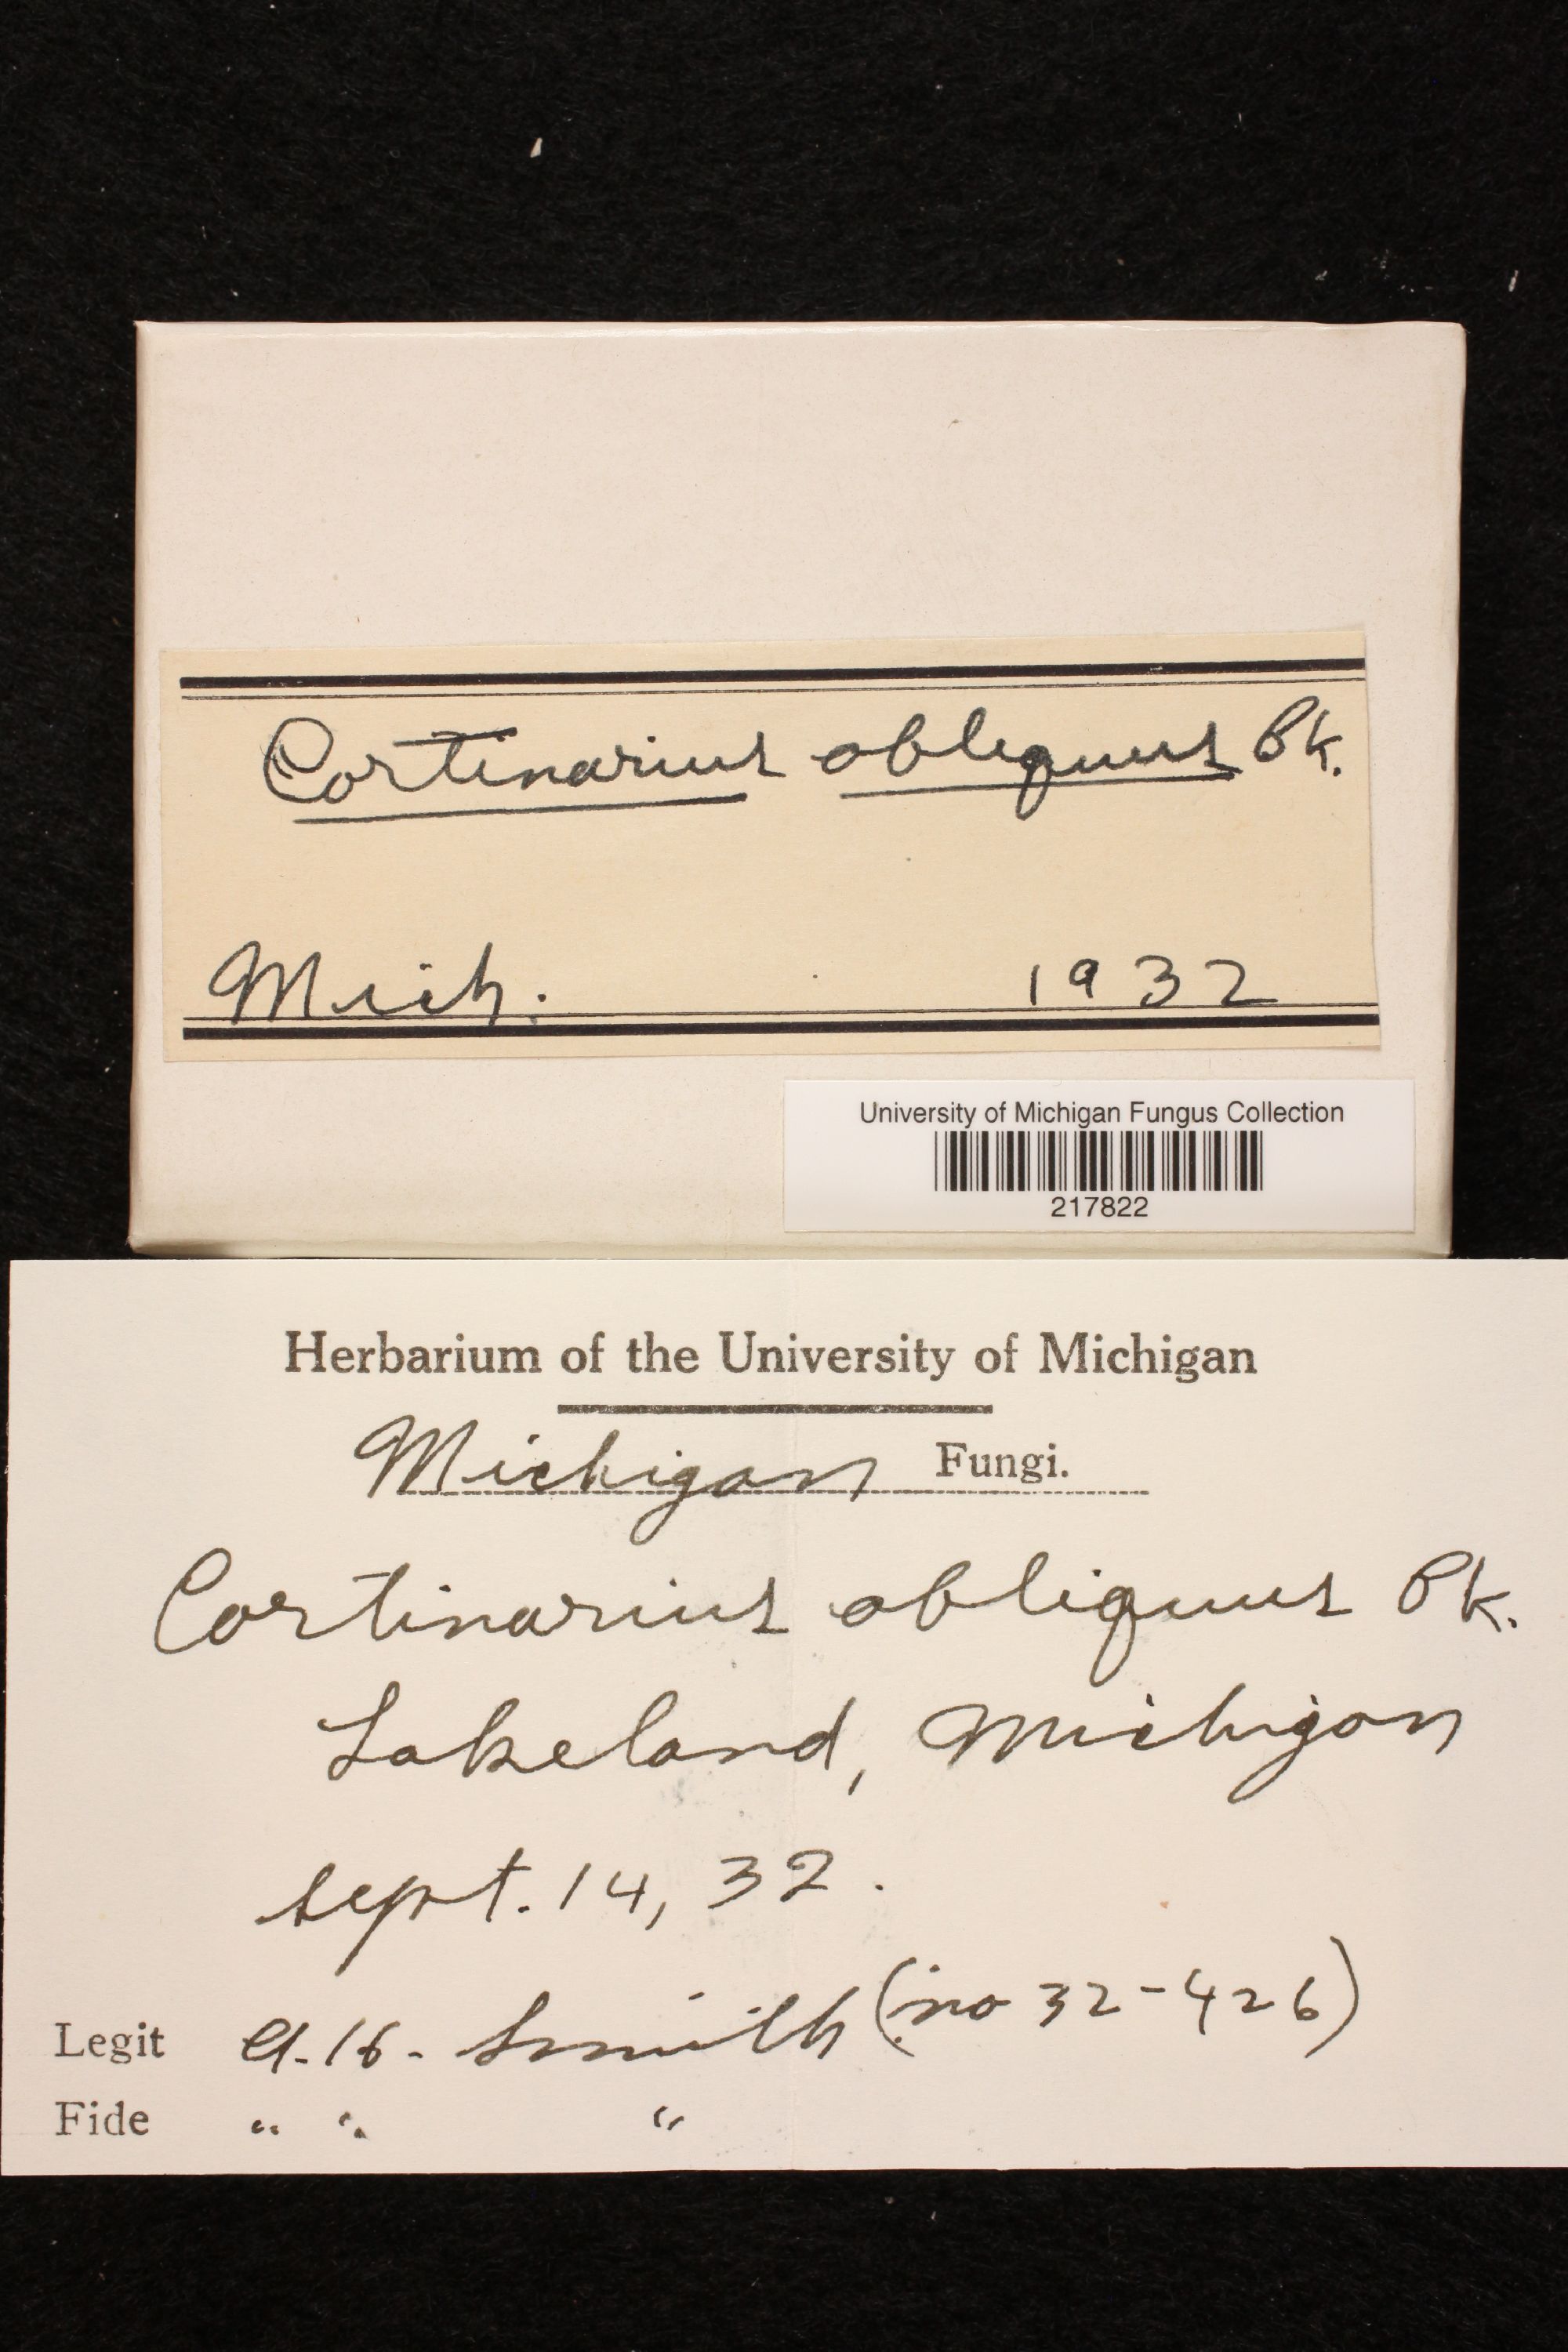 Cortinarius obliquus Pk.
Mich. 1932
University of Michigan Fungus Collection
217822
Herbarium of the University of Michigan
Michigan Fungi.
Cortinarius obliquus Pk.
Lakeland, Michigan
Sept. 14, 32.
Legit A. H. Smith (no 32-426)
Fide " " "